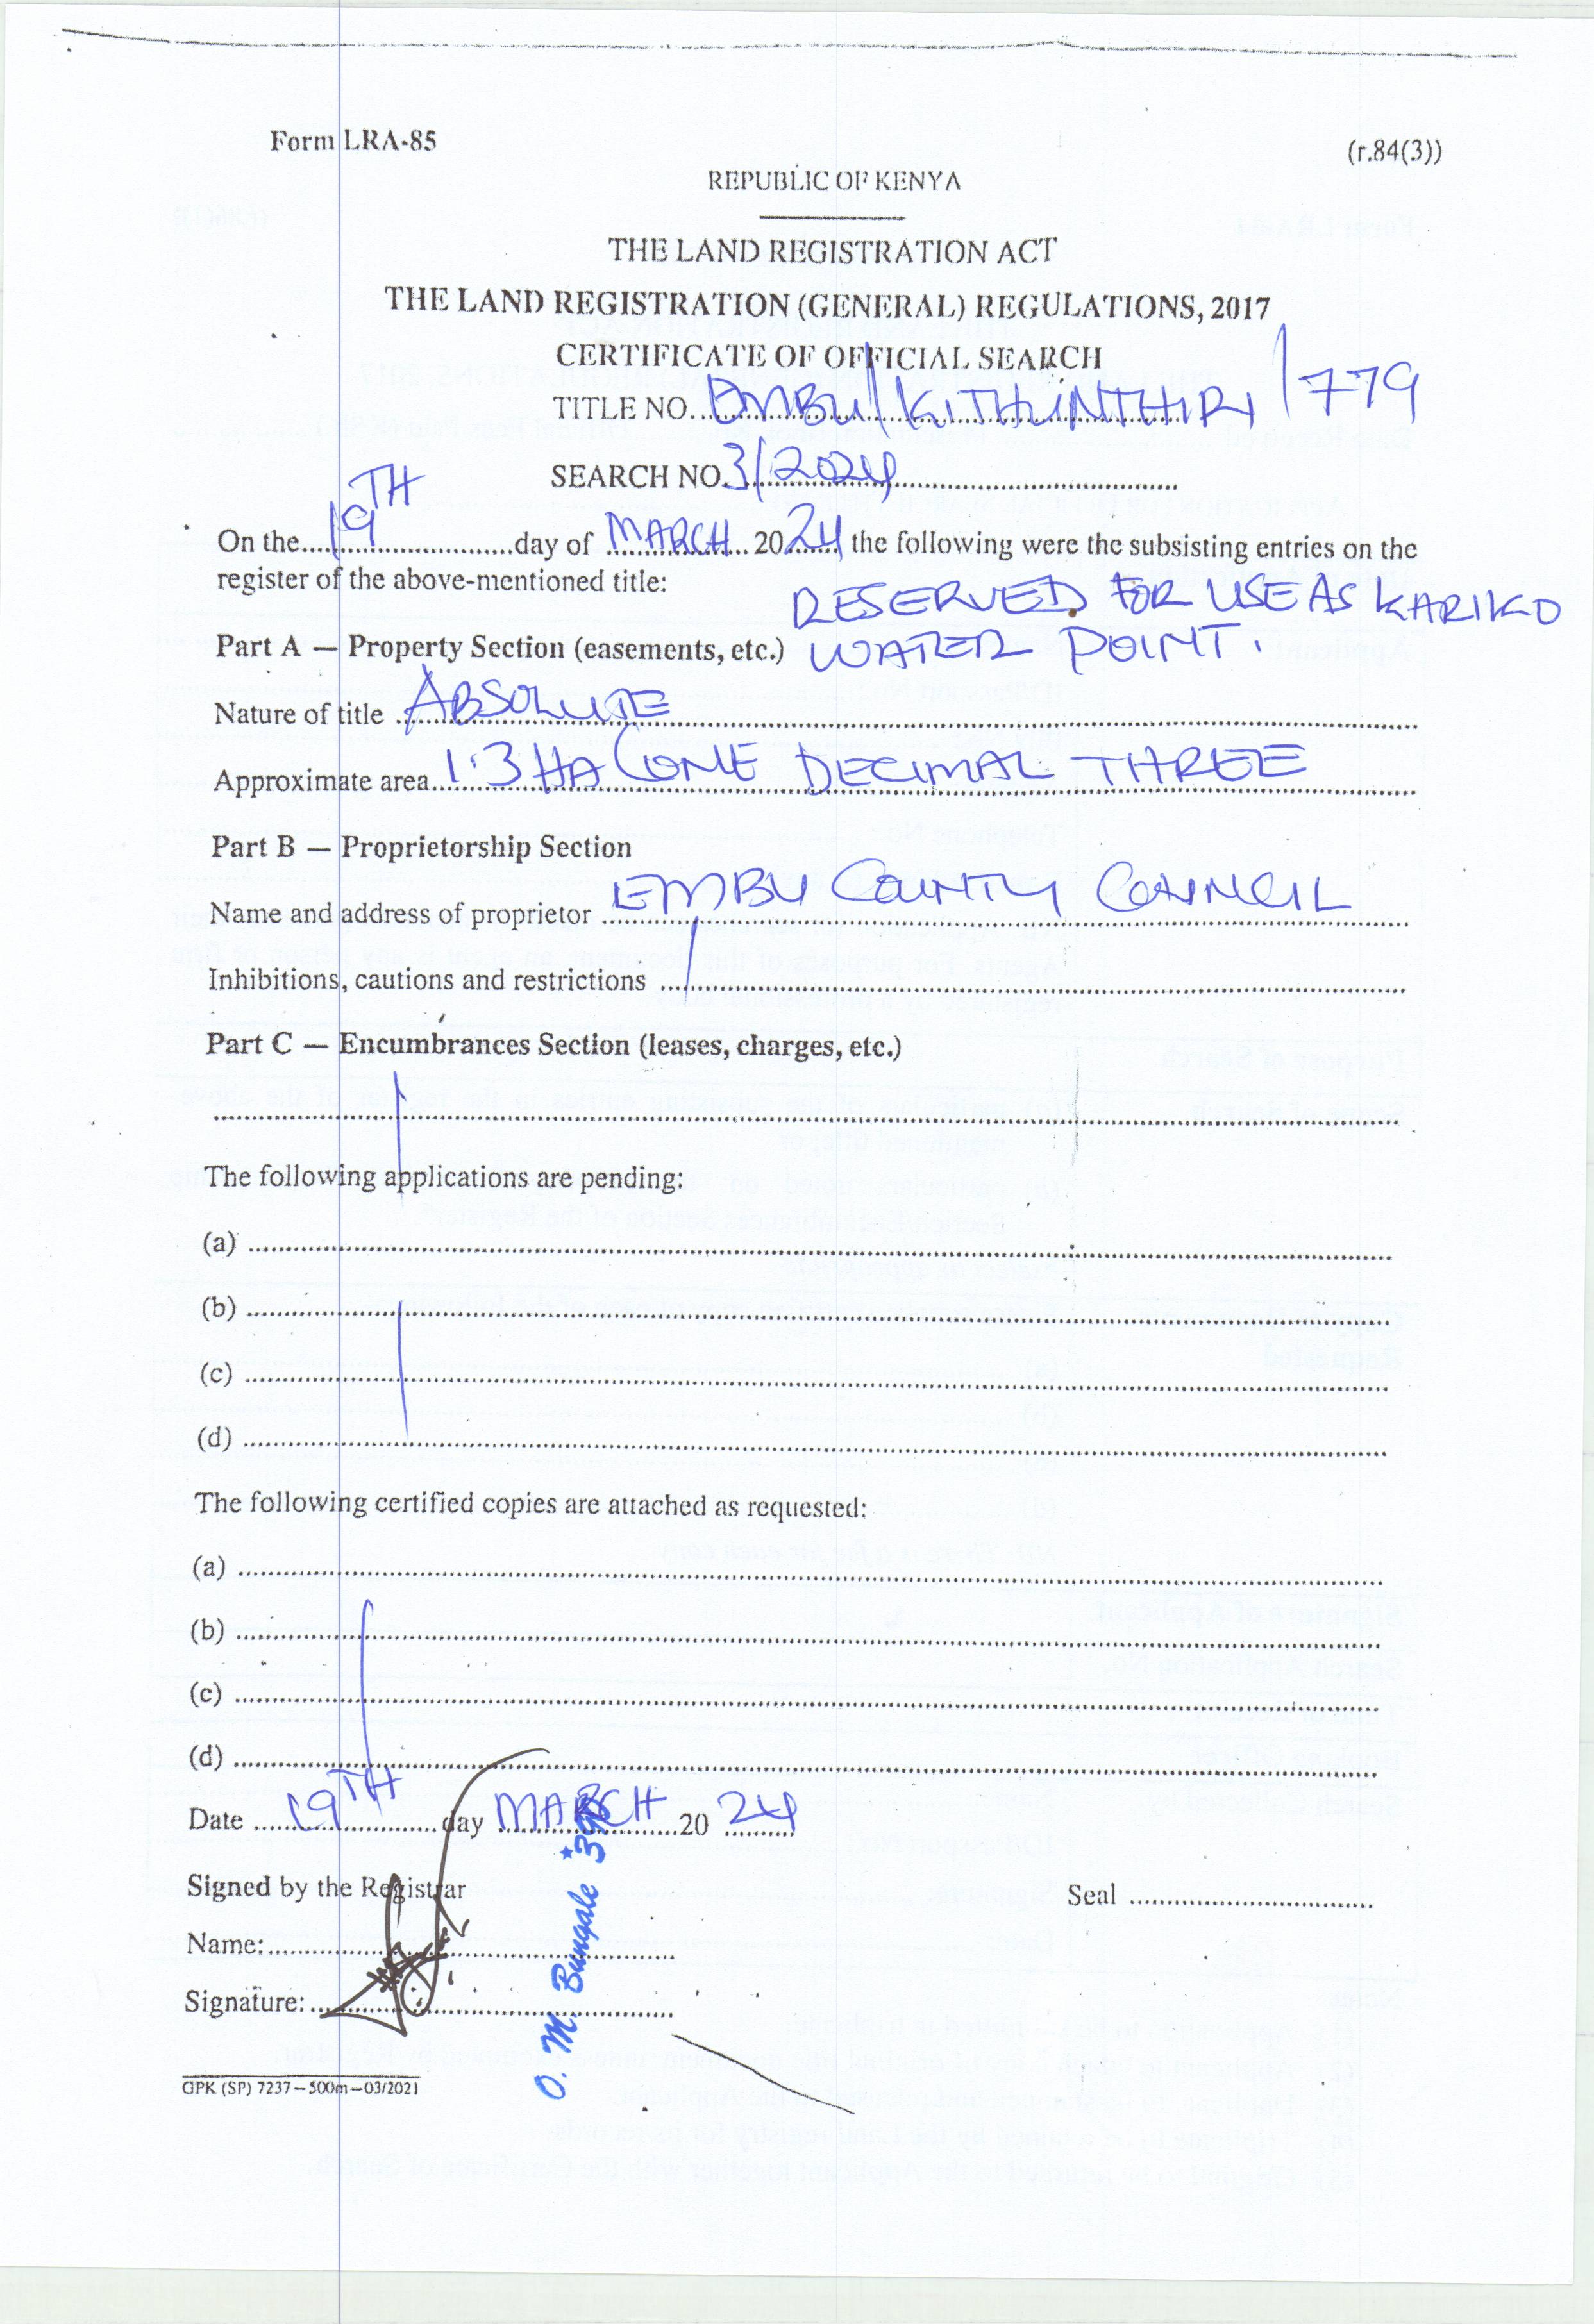 Form LRA-85
(r.84(3))
REPUBLIC OF KENYA
THE LAND REGISTRATION ACT
THE LAND REGISTRATION (GENERAL) REGULATIONS, 2017
CERTIFICATE OF OFFICIAL SEARCH
TITLE NO. EMBU/KITHUNTHIRI/779
SEARCH NO. 3/2024
On the 19TH day of MARCH 2024 the following were the subsisting entries on the
register of the above-mentioned title:
RESERVED FOR USE AS KARIKO
Part A — Property Section (easements, etc.) WATER POINT.
Nature of title ABSOLUTE
Approximate area 1.3 HA (ONE DECIMAL THREE
Part B — Proprietorship Section
Name and address of proprietor EMBU COUNTY COUNCIL
Inhibitions, cautions and restrictions
Part C — Encumbrances Section (leases, charges, etc.)
The following applications are pending:
(a)
(b)
(c)
(d)
The following certified copies are attached as requested:
(a)
(b)
(c)
(d)
Date 19TH day MARCH 20 24
Signed by the Registrar
Seal
Name:
Signature:
O. M. Bungale *
GPK (SP) 7237—500m—03/2021